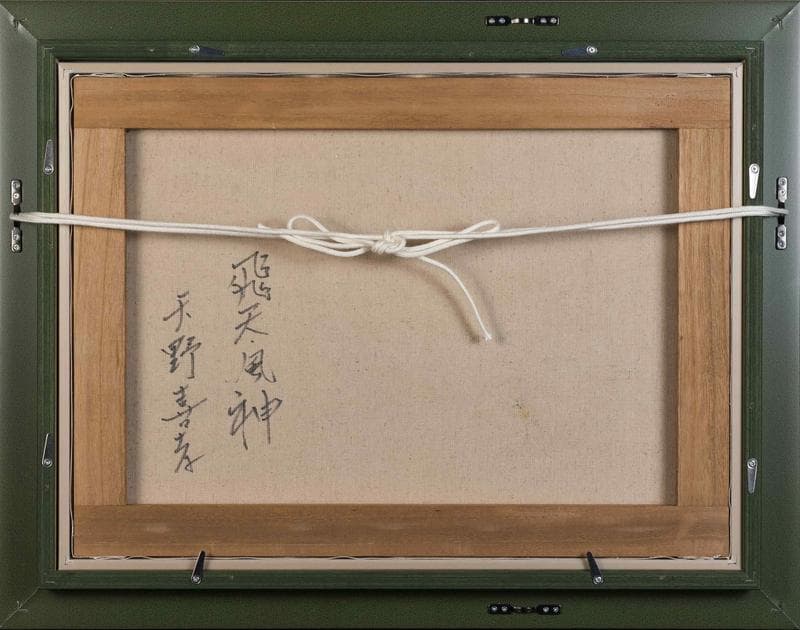 飛天風神
天野喜孝